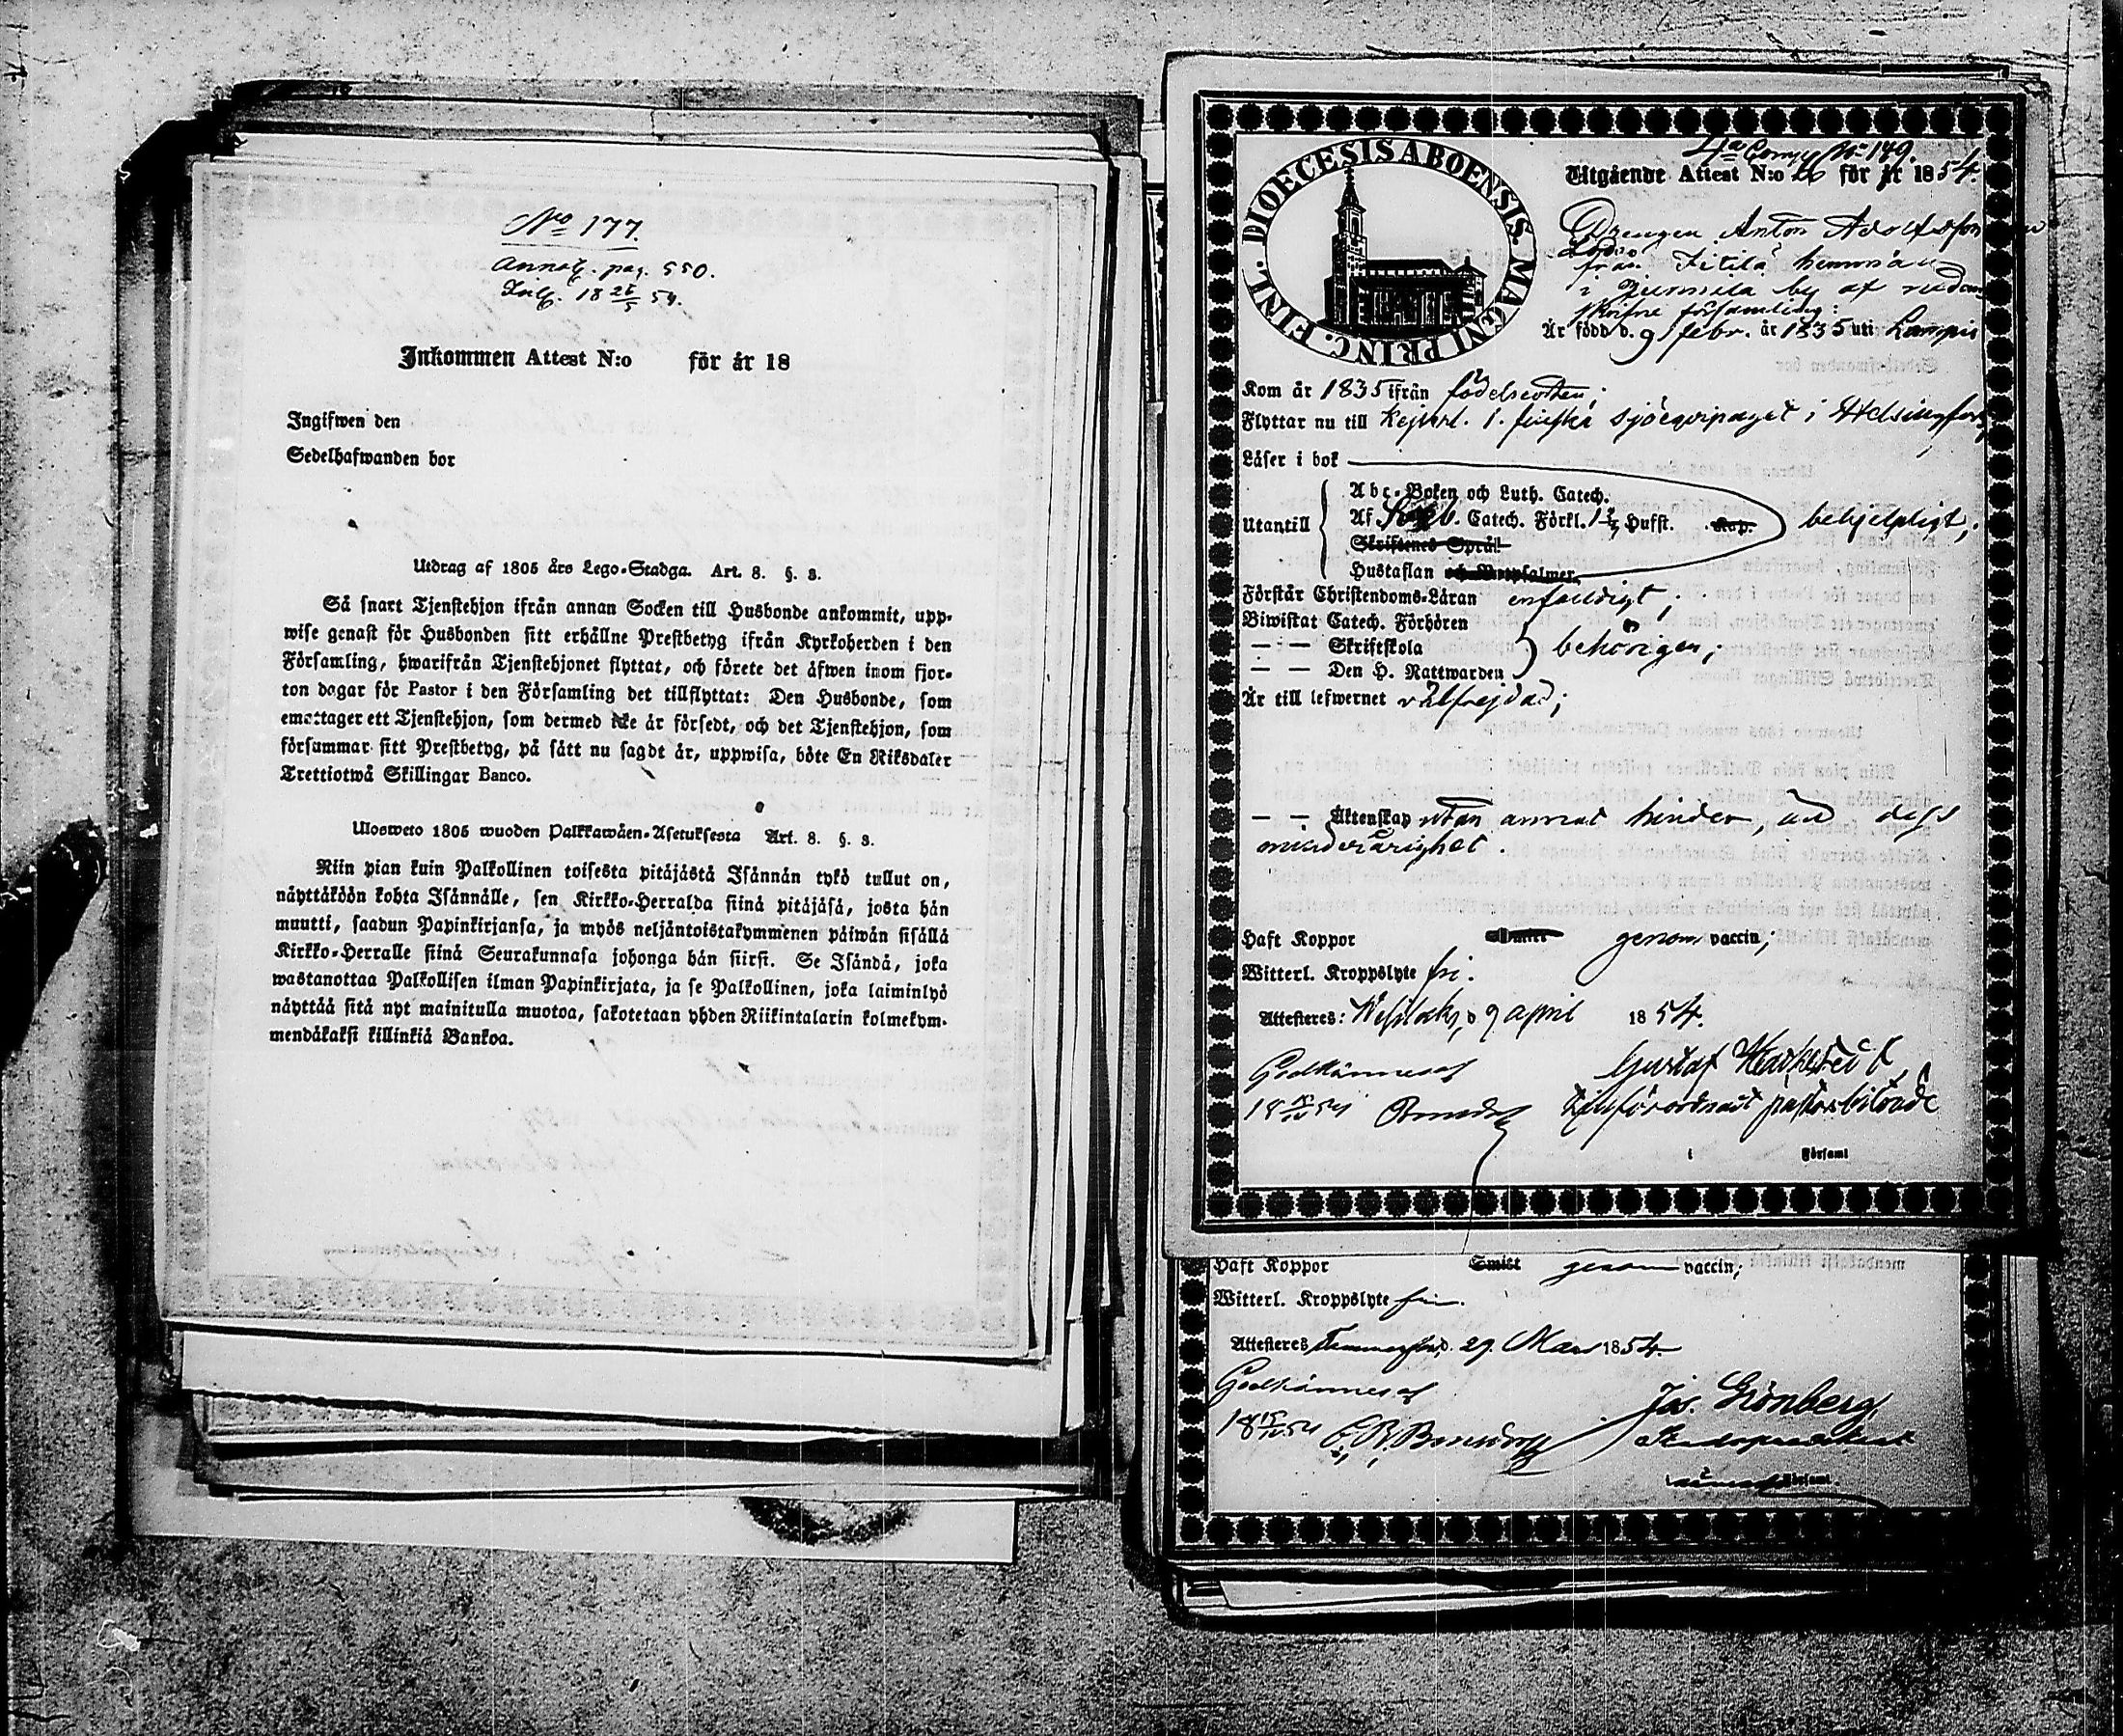 No 177.
Annot. pag. 550.
18 26/5 54.
Inkommen Attest N:o för år 18
Ingifwen den
Sedelhafwanden bor
Utdrag af 1805 års Lego-Stadga. Art. 8. §. 3.
Så snart Tjenstehjon ifrån annan Socken till Husbonde ankommit, upp-
wise genast för Husbonden sitt erhållne Prestbetyg ifrån Kyrkoherden i den
Församling, hwarifrån Tjenstehjonet flyttat, och förete det äfwen inom fjor-
ton dagar för Pastor i den Församling det tillflyttat: Den Husbonde, som
emottager ett Tjenstehjon, som dermed icke är försedt, och det Tjenstehjon, som
försummar sitt Prestbetyg, på sätt nu sagdt är, uppwisa, böte En Riksdaler
Trettiotwå Skillingar Banco.
Ulosweto 1805 wuoden Palkkawäen-Asetuksesta Art. 8. §. 3.
Niin pian kuin Palkollinen toisesta pitäjästä Isännän tykö tullut on,
näyttäköön kohta Isännälle, sen Kirkko-Herralda siinä pitäjäsä, josta hän
muutti, saadun Papinkirjansa, ja myös neljäntoistakymmenen päiwän sisällä
Kirkko-Herralle siinä Seurakunnasa johonga hän siirsi. Se Isändä, joka
wastanottaa Palkollisen ilman Papinkirjata, ja se Palkollinen, joka laiminlyö
näyttää sitä nyt mainitulla muotoa, sakotetaan yhden Riikintalarin kolmekym-
mendäkaksi killinkiä Bankoa.
DIOECESIS ABOENSIS. MAGNI PRINC. FINL.
4a Comp No 149.
Utgående Attest N:o för år 1854.
Drengen Anton Adolfsson
från Jitilä hemman
i by af nedan
skrifne församling:
Är född d. 9 febr. år 1835 uti Lampis
Kom år 1835 ifrån födelseorten;
Flyttar nu till Kejserl. 1. finska sjöeqvipaget i Helsingfors,
Läser i bok
Abc-Boken och Luth. Catech.
Utantill Af Catech. Förkl. 1 Hufst. Kap. behjelpligt;
Skriftenes Språk
Hustaflan och Botpsalmer.
Förstår Christendoms-Läran enfaldigt;
Biwistat Catech. Förhören
— — Skriftskola behörigen;
— — Den H. Nattwarden
Är till lefwernet välfrejdad;
— — Äktenskap utan annat hinder, än dess
mindreårighet.
Haft Koppor Smitt genom vaccin;
Witterl. Kroppslyte fri.
Attesteres: Wesilaks, d 9 april 1854.
Godkännes af Gustaf
18 15/IV 54 Bonsdorff Tillförordnadt pastorsbiträde
i Församl
Haft Koppor Smitt genom vaccin;
Witterl. Kroppslyte fri.
Attesteres Tammerfors, d. 29. Mars 1854.
Godkännes af Jos. Grönberg,
18 15/IV 54 Bonsdorff
i Församl